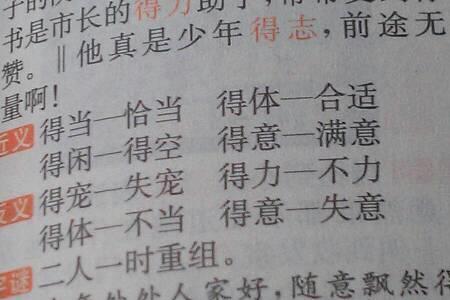 书是市长的得力助手
赞。‖他真是少年得志，前途无
量啊！
近义 得当—恰当 得体—合适
得闲—得空 得意—满意
反义 得宠—失宠 得力—不力
得体—不当 得意—失意
字谜 二人一时重组。
处处人家好，随意飘然得